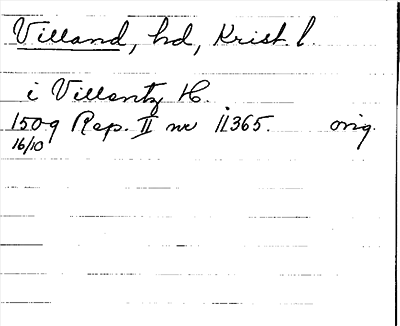 Villand, hd, Krist. l.
i Villantz H.
1509 Rep. II nr 11365. orig.
16/10